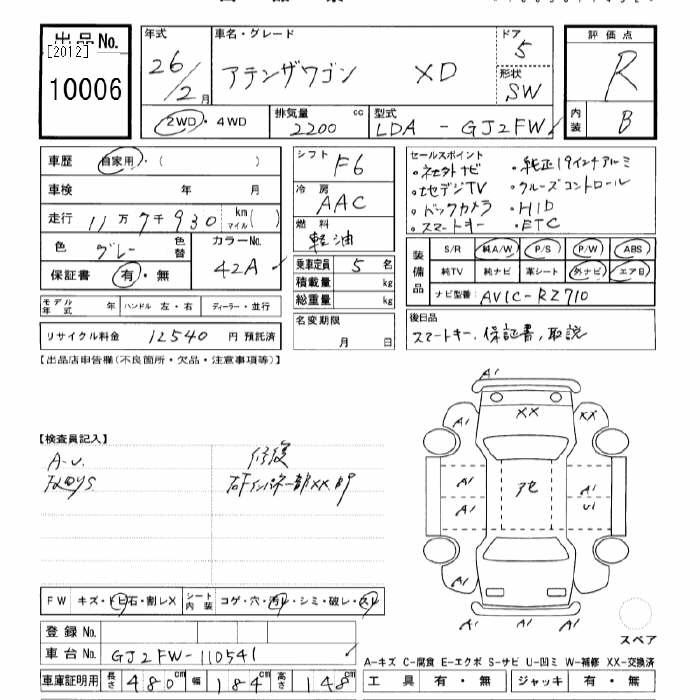 出品No.
[2012]
10006
年式
26/2月
車名・グレード
アテンザワゴン XD
ドア
5
形状
SW
評価点
R
内装
B
2WD・4WD
排気量
2200 cc
型式
LDA - GJ2FW
車歴 自家用・( )
車検 年 月
走行 11万7千930 km マイル( )
色 グレー 色替
カラーNo.
42A
保証書 有・無
シフト
F6
冷房
AAC
燃料
軽油
乗車定員 5 名
積載量 kg
総重量 kg
名変期限
月 日
セールスポイント
・社外ナビ ・純正19インチアルミ
・地デジTV ・クルーズコントロール
・バックカメラ ・HID
・スマートキー ・ETC
装備品
S/R 純A/W P/S P/W ABS
純TV 純ナビ 革シート 外ナビ エアB
ナビ型番: AVIC-RZ710
モデル年式 年 ハンドル 左・右 ディーラー・並行
リサイクル料金 12540 円 預託済
後日品
スマートキー、保証書、取説
【出品店申告欄(不良箇所・欠品・注意事項等)】
【検査員記入】
A・U.
修復
A1
A1
XX
XX
A1
A1
A1
A1
U1
A1
A1
A1
A1
スペア
FW キズ・トビ石・割レX シート内装 コゲ・穴・汚レ・シミ・破レ・スレ
登録No.
車台No. GJ2FW-110541
車庫証明用 長さ 480cm 幅 184cm 高さ 148cm
A-キズ C-腐食 E-エクボ S-サビ U-凹ミ W-補修 XX-交換済
工具 有・無 ジャッキ 有・無